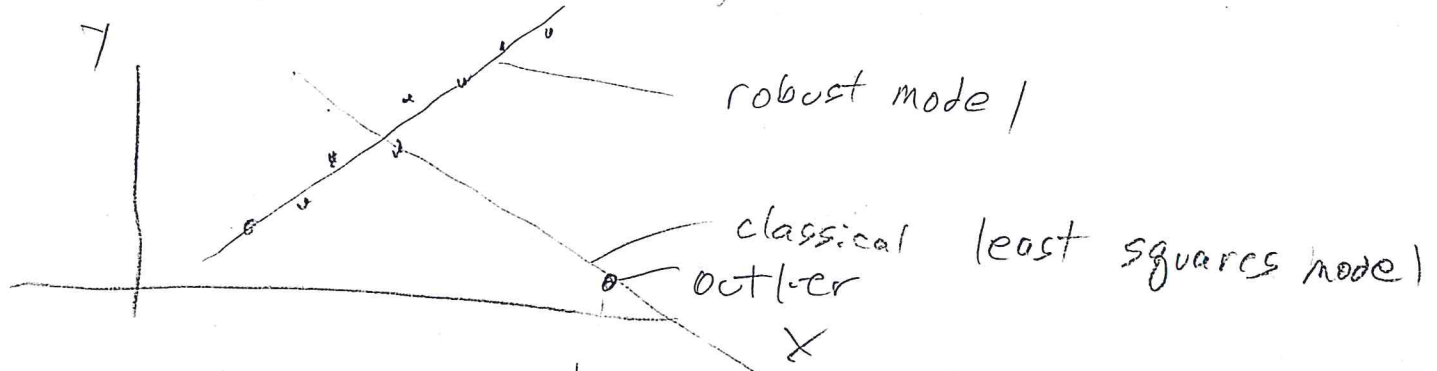 Y
robust model
classical least squares model
outlier
X